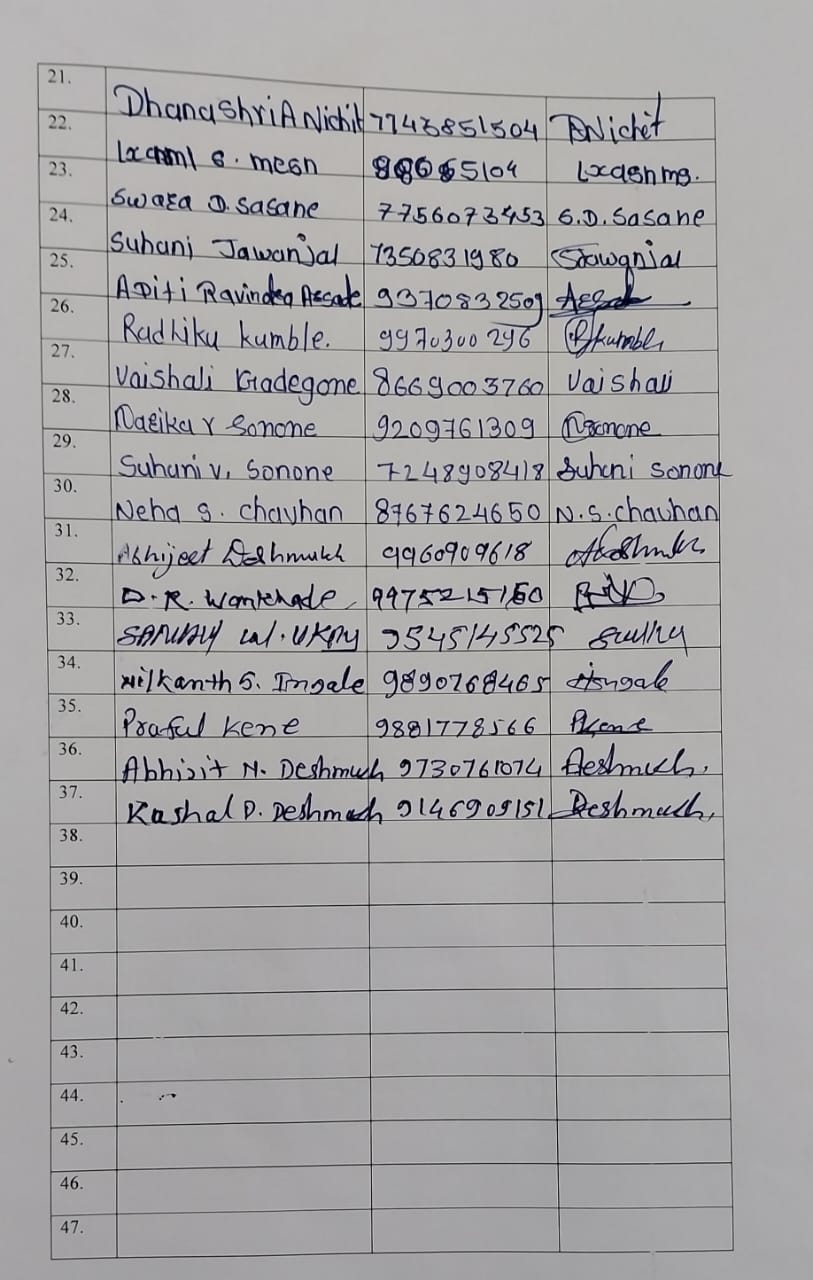 21. Dhanashri A Nichit 7743851504 DNichit
22. Laxmi S. mesn
23. Swara D. Sasane 7756073453 S.D. Sasane
24. Suhani Jawanjal 7350831980
25. Aditi Ravindra 9370832509
26. Radhika kumble. 9970300296 Rkumble
27. Vaishali Gadegone 8669003760 Vaishali
28. Rasika V Sonone 9209761309 Rsonone
29. Suhani V. Sonone 7248908418 Suhani Sonone
30. Neha S. chauhan 8767624650 N.S.chauhan
31. Abhijeet Deshmukh 9960909618
32. D.R. Wankhade 9975215150
33. SANJAY 9545145525
34. Nilkanth S. Ingale 9890768465 Ingale
35. Praful Kene 9881778566 PKene
36. Abhijit N. Deshmukh 9730761074 Deshmukh.
37. Kushal D. Deshmukh 9146909151 Deshmukh.
38.
39.
40.
41.
42.
43.
44.
45.
46.
47.